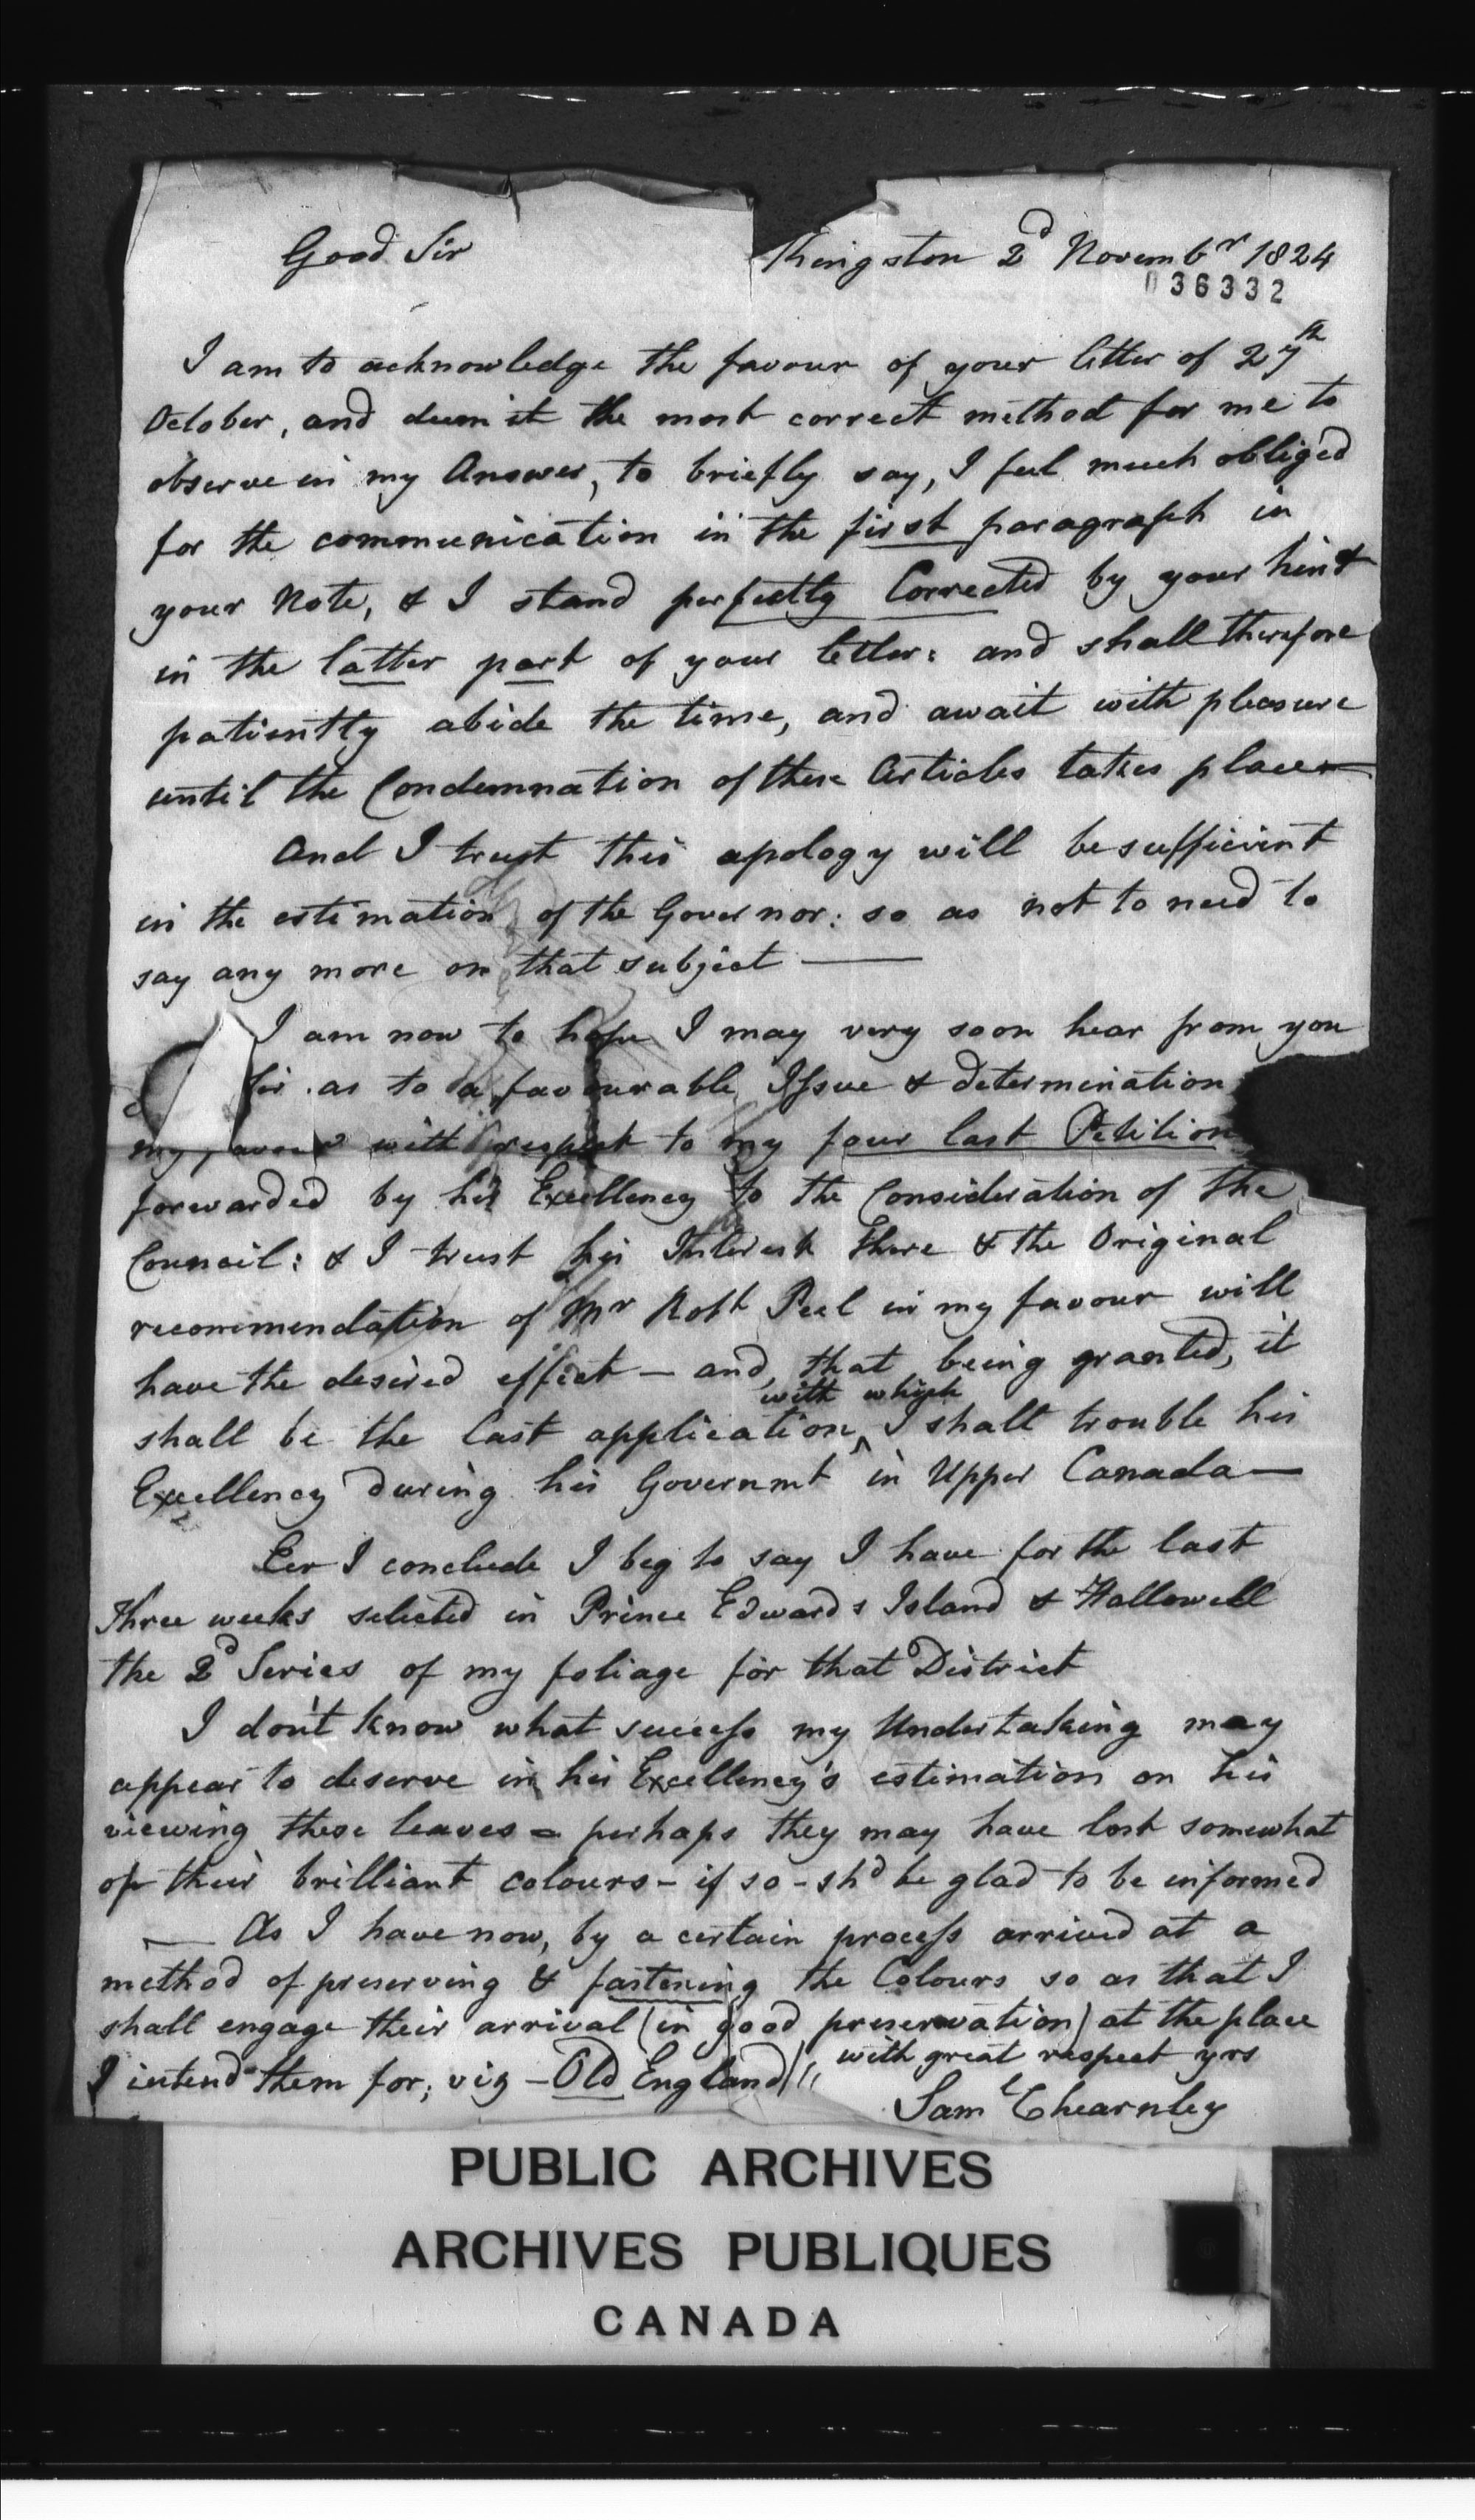 Good Sir
Kingston 2d Novembr 1824
036332
I am to acknowledge the favour of your letter of 27th
October, and deem it the most correct method for me to
observe in my Answer, to briefly say, I feel much obliged
for the communication in the first paragraph in
your Note, & I stand perfectly Corrected by your hint
in the latter part of your letter: and shall therefore
patiently abide the time, and await with pleasure
until the Condemnation of these Articles takes place—
And I trust this apology will be sufficient
in the estimation of the Governor: so as not to need to
say any more on that subject —
I am now to hope I may very soon hear from you
Sir as to a favourable Issue & determination
my favour with respect to my four last Petition
forwarded by his Excellency to the Consideration of the
Council: & I trust his Interest there & the Original
recommendation of Mr Robt Peel in my favour will
have the desired effect — and, that being granted, it
with which
shall be the last application ^ I shall trouble his
Excellency during his Governmt in Upper Canada —
Eer I conclude I beg to say I have for the last
three weeks selected in Prince Edwards Island & Hallowell
the 2d Series of my foliage for that District
I don't know what success my Undertaking may
appear to deserve in his Excellency's estimation on his
viewing these leaves = perhaps they may have lost somewhat
of their brilliant colours - if so - shd be glad to be informed
— As I have now, by a certain process arrived at a
method of preserving & fastening the Colours so as that I
shall engage their arrival (in good preservation) at the place
I intend them for; viz - Old England)"
with great respect yrs
Saml Chearnley
PUBLIC ARCHIVES
ARCHIVES PUBLIQUES
CANADA